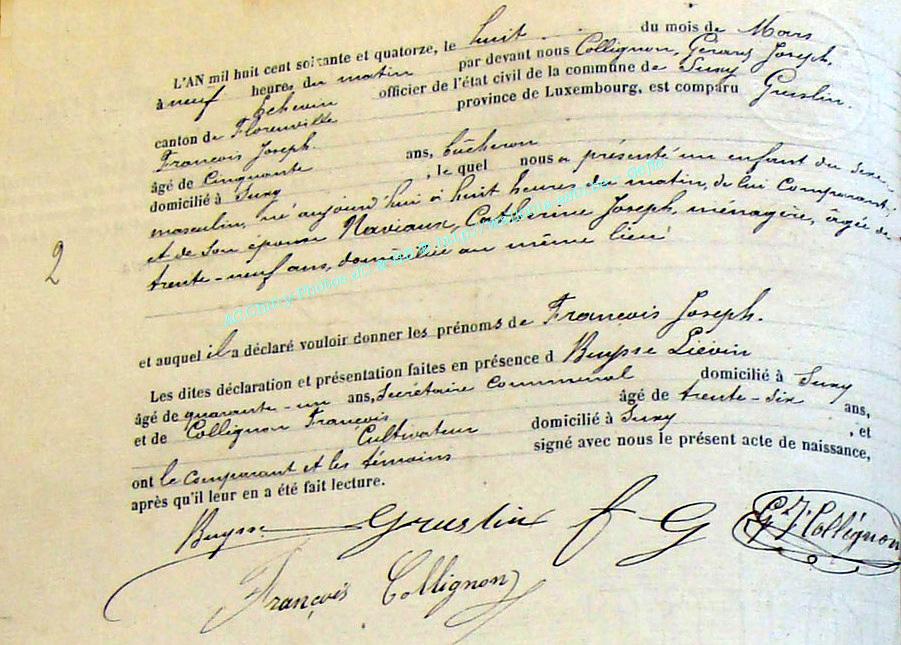 L'AN mil huit cent soixante et quatorze, le huit du mois de Mars
à neuf heures du matin par devant nous Collignon, Gérard Joseph,
Echevin officier de l'état civil de la commune de Suxy
canton de Florenville province de Luxembourg, est comparu Gruslin.
François Joseph.
âgé de Cinquante ans, bûcheron
domicilié à Suxy, le quel nous a présenté un enfant du sexe
masculin, né aujourd'hui à huit heures du matin, de lui Comparant
et de son épouse Naviaux, Catherine Joseph, ménagère, âgée de
trente-neuf ans, domiciliée au même lieu
2
et auquel il a déclaré vouloir donner les prénoms de François Joseph.
Les dites déclaration et présentation faites en présence d Buysse Liévin
âgé de quarante-un ans, Secrétaire Communal domicilié à Suxy
et de Collignon François âgé de trente-six ans,
Cultivateur domicilié à Suxy, et
ont le comparant et les témoins signé avec nous le présent acte de naissance,
après qu'il leur en a été fait lecture.
Buysse Gruslin f G G J. Collignon
François Collignon